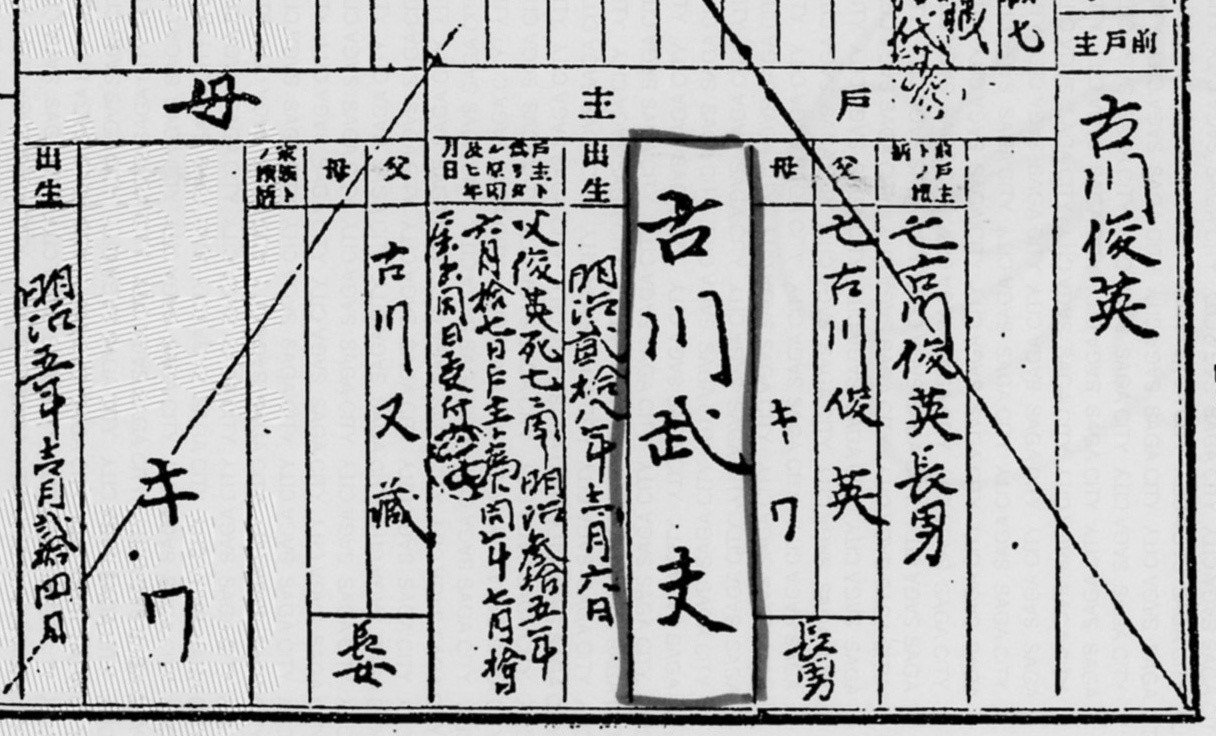 前戸主
古川俊英
戸主
亡古川俊英長男
父
亡古川俊英
母
キワ
長男
古川武夫
出生
明治貳拾八年壱月六日
戸主ト為リタル原因及ヒ年月日
父俊英死亡ニ因リ明治参拾五年
六月拾七日戸主ト為ル同年七月拾
届出同日受付
母
父
古川又藏
母
長女
家族トノ続柄
キワ
出生
明治五年壱月貳拾四日